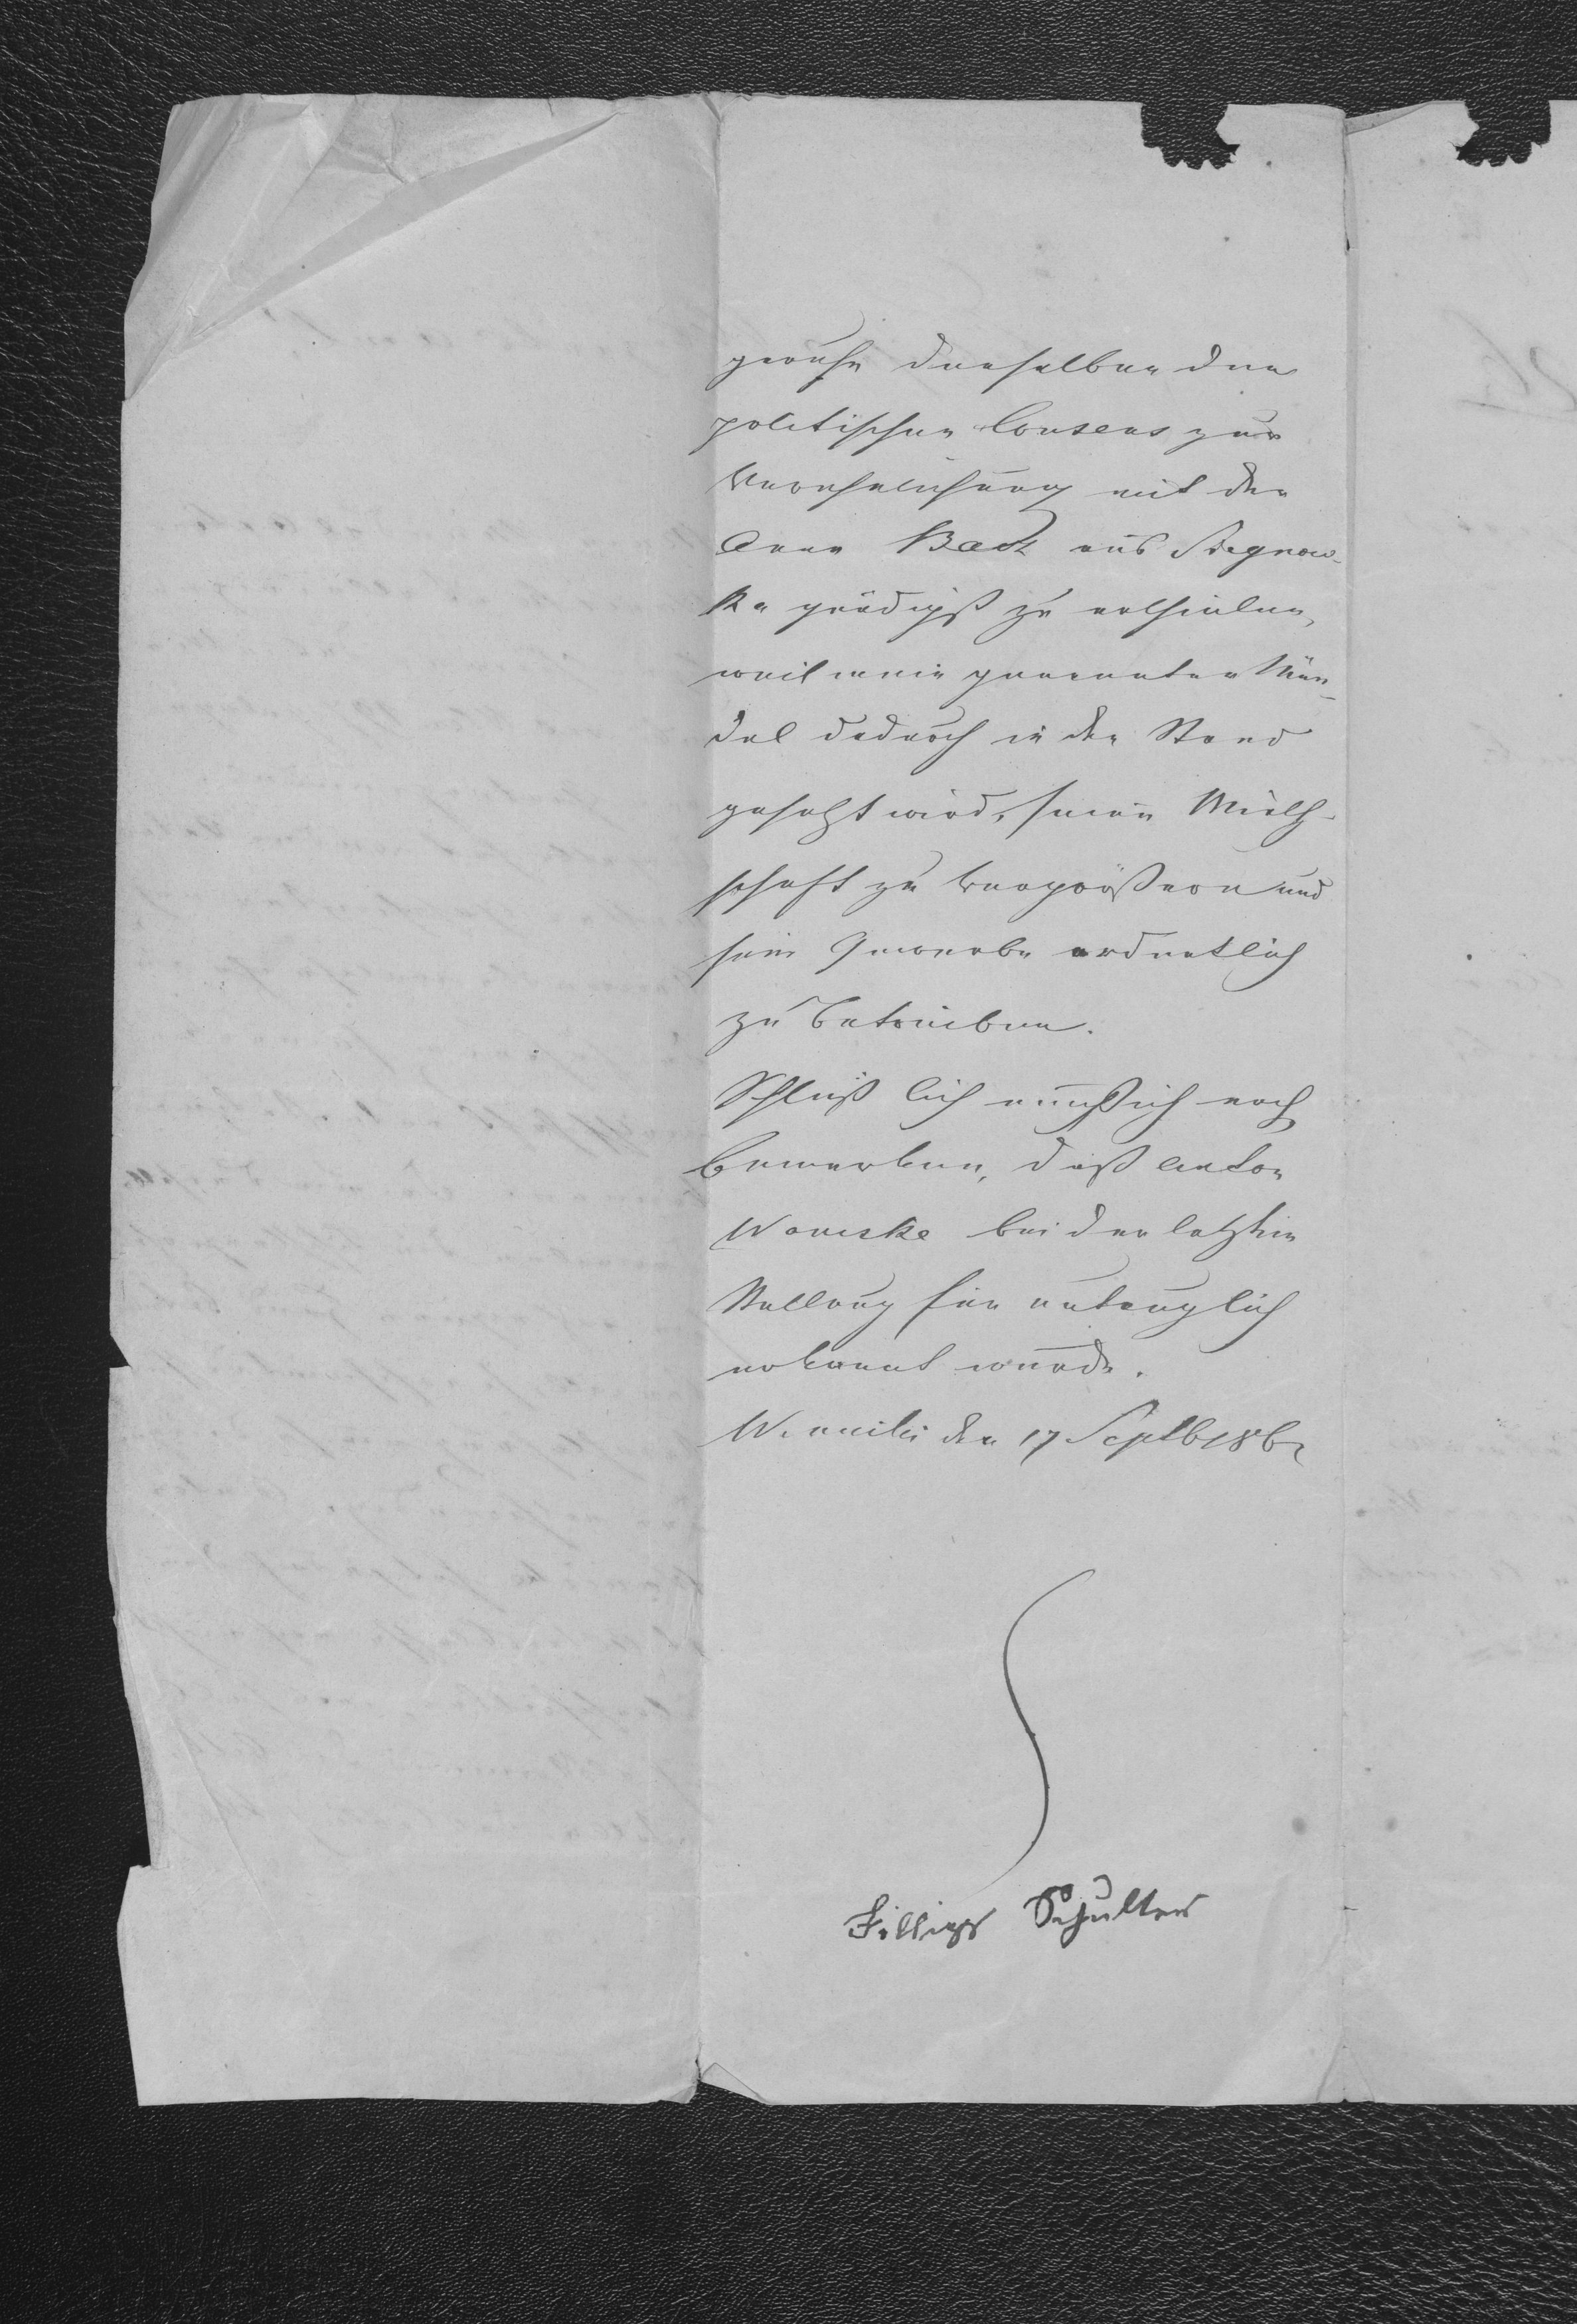 geruhe denselben den
politischen Consens zur
Verehelichung mit der
Anna Back aus Stegnow-
ka gnädigst zu ertheilen,
weil mein genannter Mün-
del dadurch in den Stand
gesetzt wird, seine Wirth-
schaft zu vergrößern und
sein Gewerbe ordentlich
zu betreiben.
Schlüßlich muß ich noch
bemerken, daß Anton
Woneske bei der letzten
Stellung für untauglich
erkannt wurde.
Winniki den 17 Septb 1862
Fillips Schulter